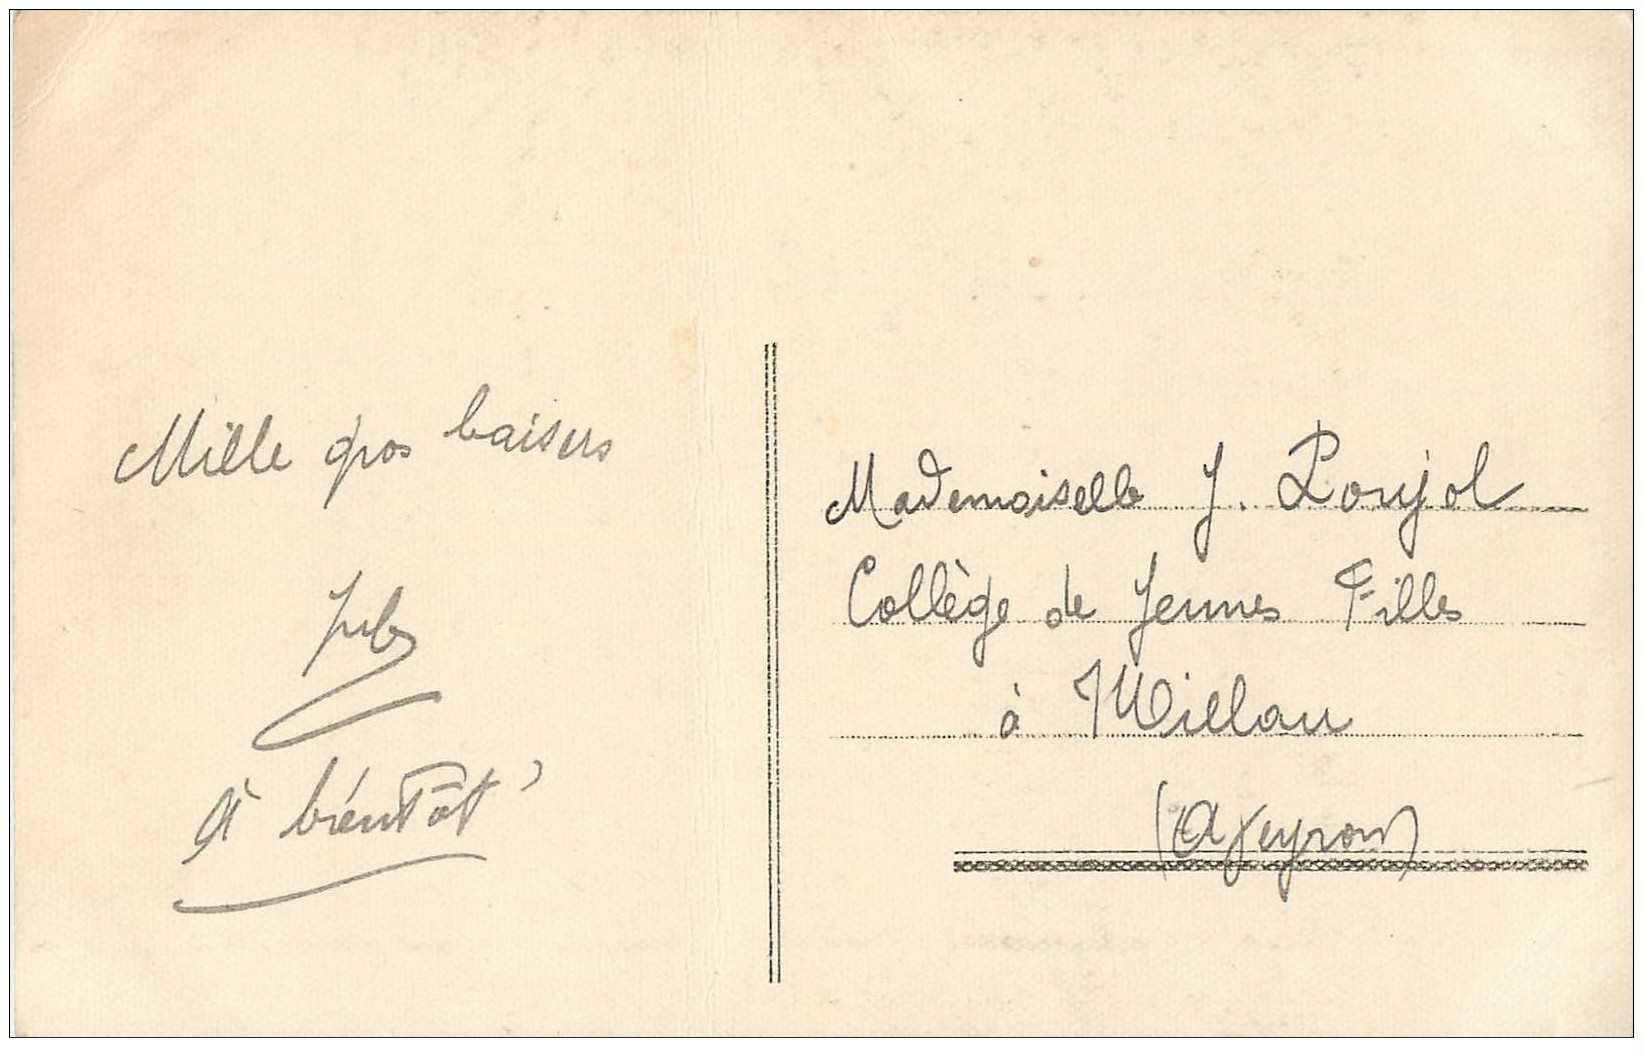 Mille gros baisers
à bientôt
Mademoiselle J. Poujol
Collège de Jeunes Filles
à Millau
(Aveyron)